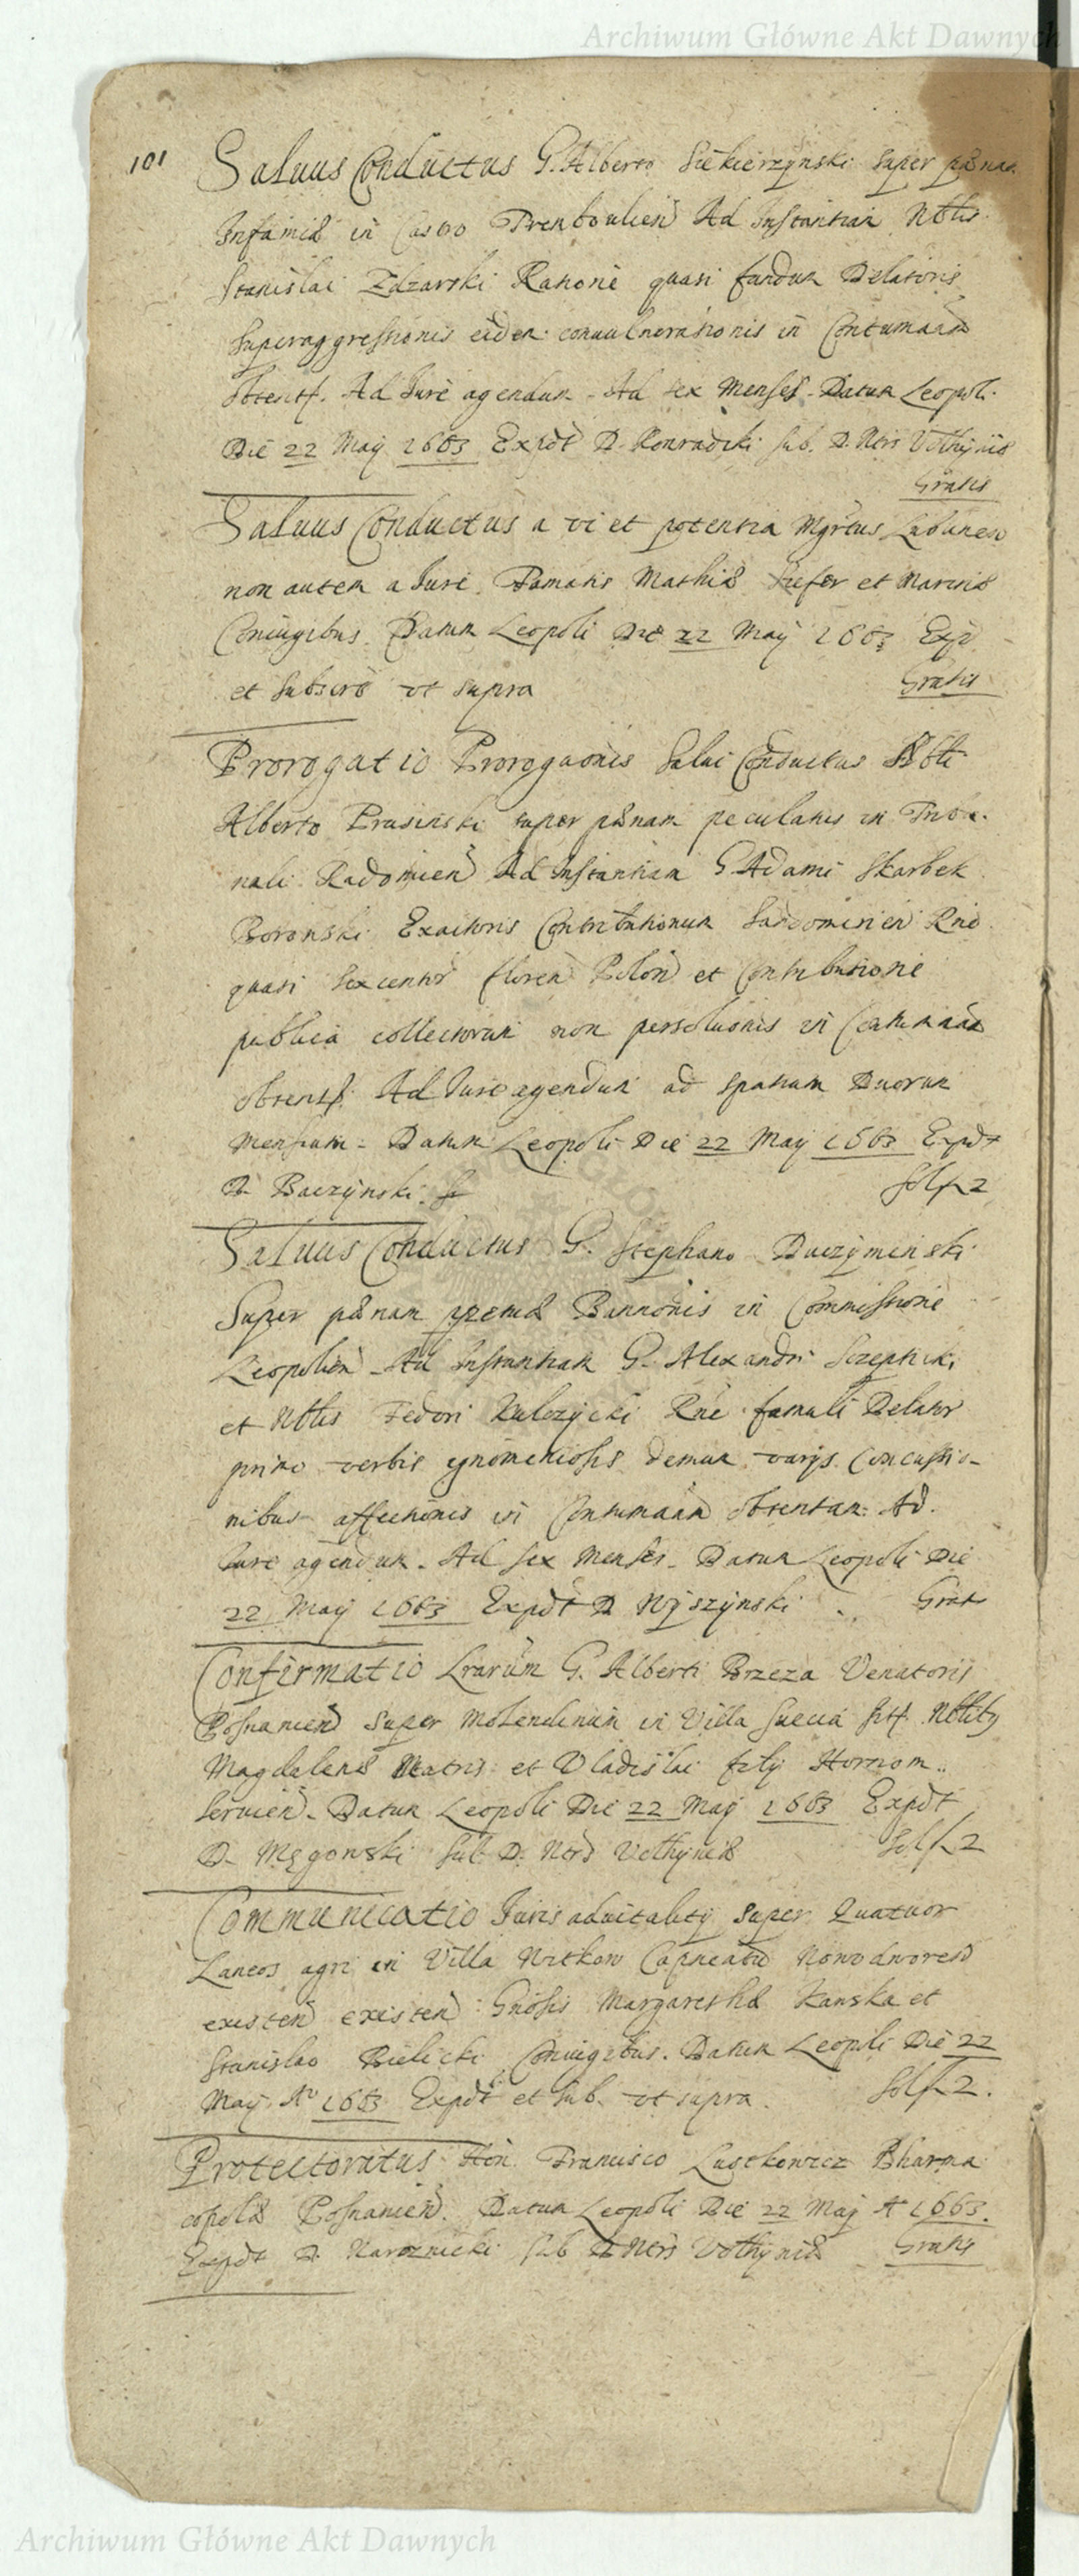 Archiwum Główne Akt Dawnych
101
Saluus Conductus G. Alberto Siekierzynski super pænam
Infamiæ in Castro Trembovlien Ad Instantian Nblis
Stanislai Zdzarski Ratione quasi fundum Delatoris
superaggressionis eidem convulnerationis in Contumaciam
obtent. Ad Jure agendum. Ad sex Menses. Datum Leopoli.
Die 22 Maij 1663 Expdt D. Konradzki sub. D. Ntris Volhyniæ
Gratis
Saluus Conductus a vi et potentia Mgrtus Lublinen
non autem a Jure. Famatis Mathiæ et Marinæ
Coniugibus. Datum Leopoli Die 22 Maij 1663 Exp
et subscrb vt supra
Gratis
Prorogatio Prorogaonis Salui Conductus Nbli
Alberto Prusinski super pænam peculatus in Tribu-
nali Radomien Ad Instantiam G. Adami Skarbek
Boronski Exactoris Contributionum Sandomirien Rne
quasi sexcentor floren Polon et Contributione
publica collectorum non persolutionis in Contumaciam
obtent. Ad Jure agendum ad spatium Duorum
Mensium. Datum Leopoli Die 22 Maij 1663 Expdt
D. Baczynski
Sol f 2
Saluus Conductus G. Stephano Duczyminski
Super pænam Bannonis in Commissione
Leopolien. Ad Instantiam G. Alexandri
et Nblis Fedori Kulczycki Rne famuli Delator
primo verbis ignominiosis demum varijs Concussio-
nibus affectionis in Contumaciam obtentam. Ad
Jure agendum. Ad sex Menses. Datum Leopoli Die
22 Maij 1663 Expdt D Wyszynski Grat
Confirmatio Lrarum G. Alberti Brzeza Venatoris
Posnanien super Molendinum in Villa sit. Nblity
Magdalenæ Matris et Vladislai filij
seruien. Datum Leopoli Die 22 Maij 1663 Expdt
D. Męgonski sub D. Ntrs Volhyniæ
Sol f 2
Communicatio Juris aduitality super Quatuor
Laneos agri in Villa Witkow Capneatu Nowodworen
existen existen Gnosis Margarethæ Kanska et
Stanislao Bielicki Coniugibus. Datum Leopoli Die 22
Maij Ao 1663 Expdt et sub. vt supra. Sol f 2.
Protectoratus Hon. Francisco Lustkowicz Pharma
copolæ Posnanien. Datum Leopoli Die 22 Maij A 1663.
Expdt D. Naroznicki sub D Ntrs Volhyniæ Gratis
Archiwum Główne Akt Dawnych